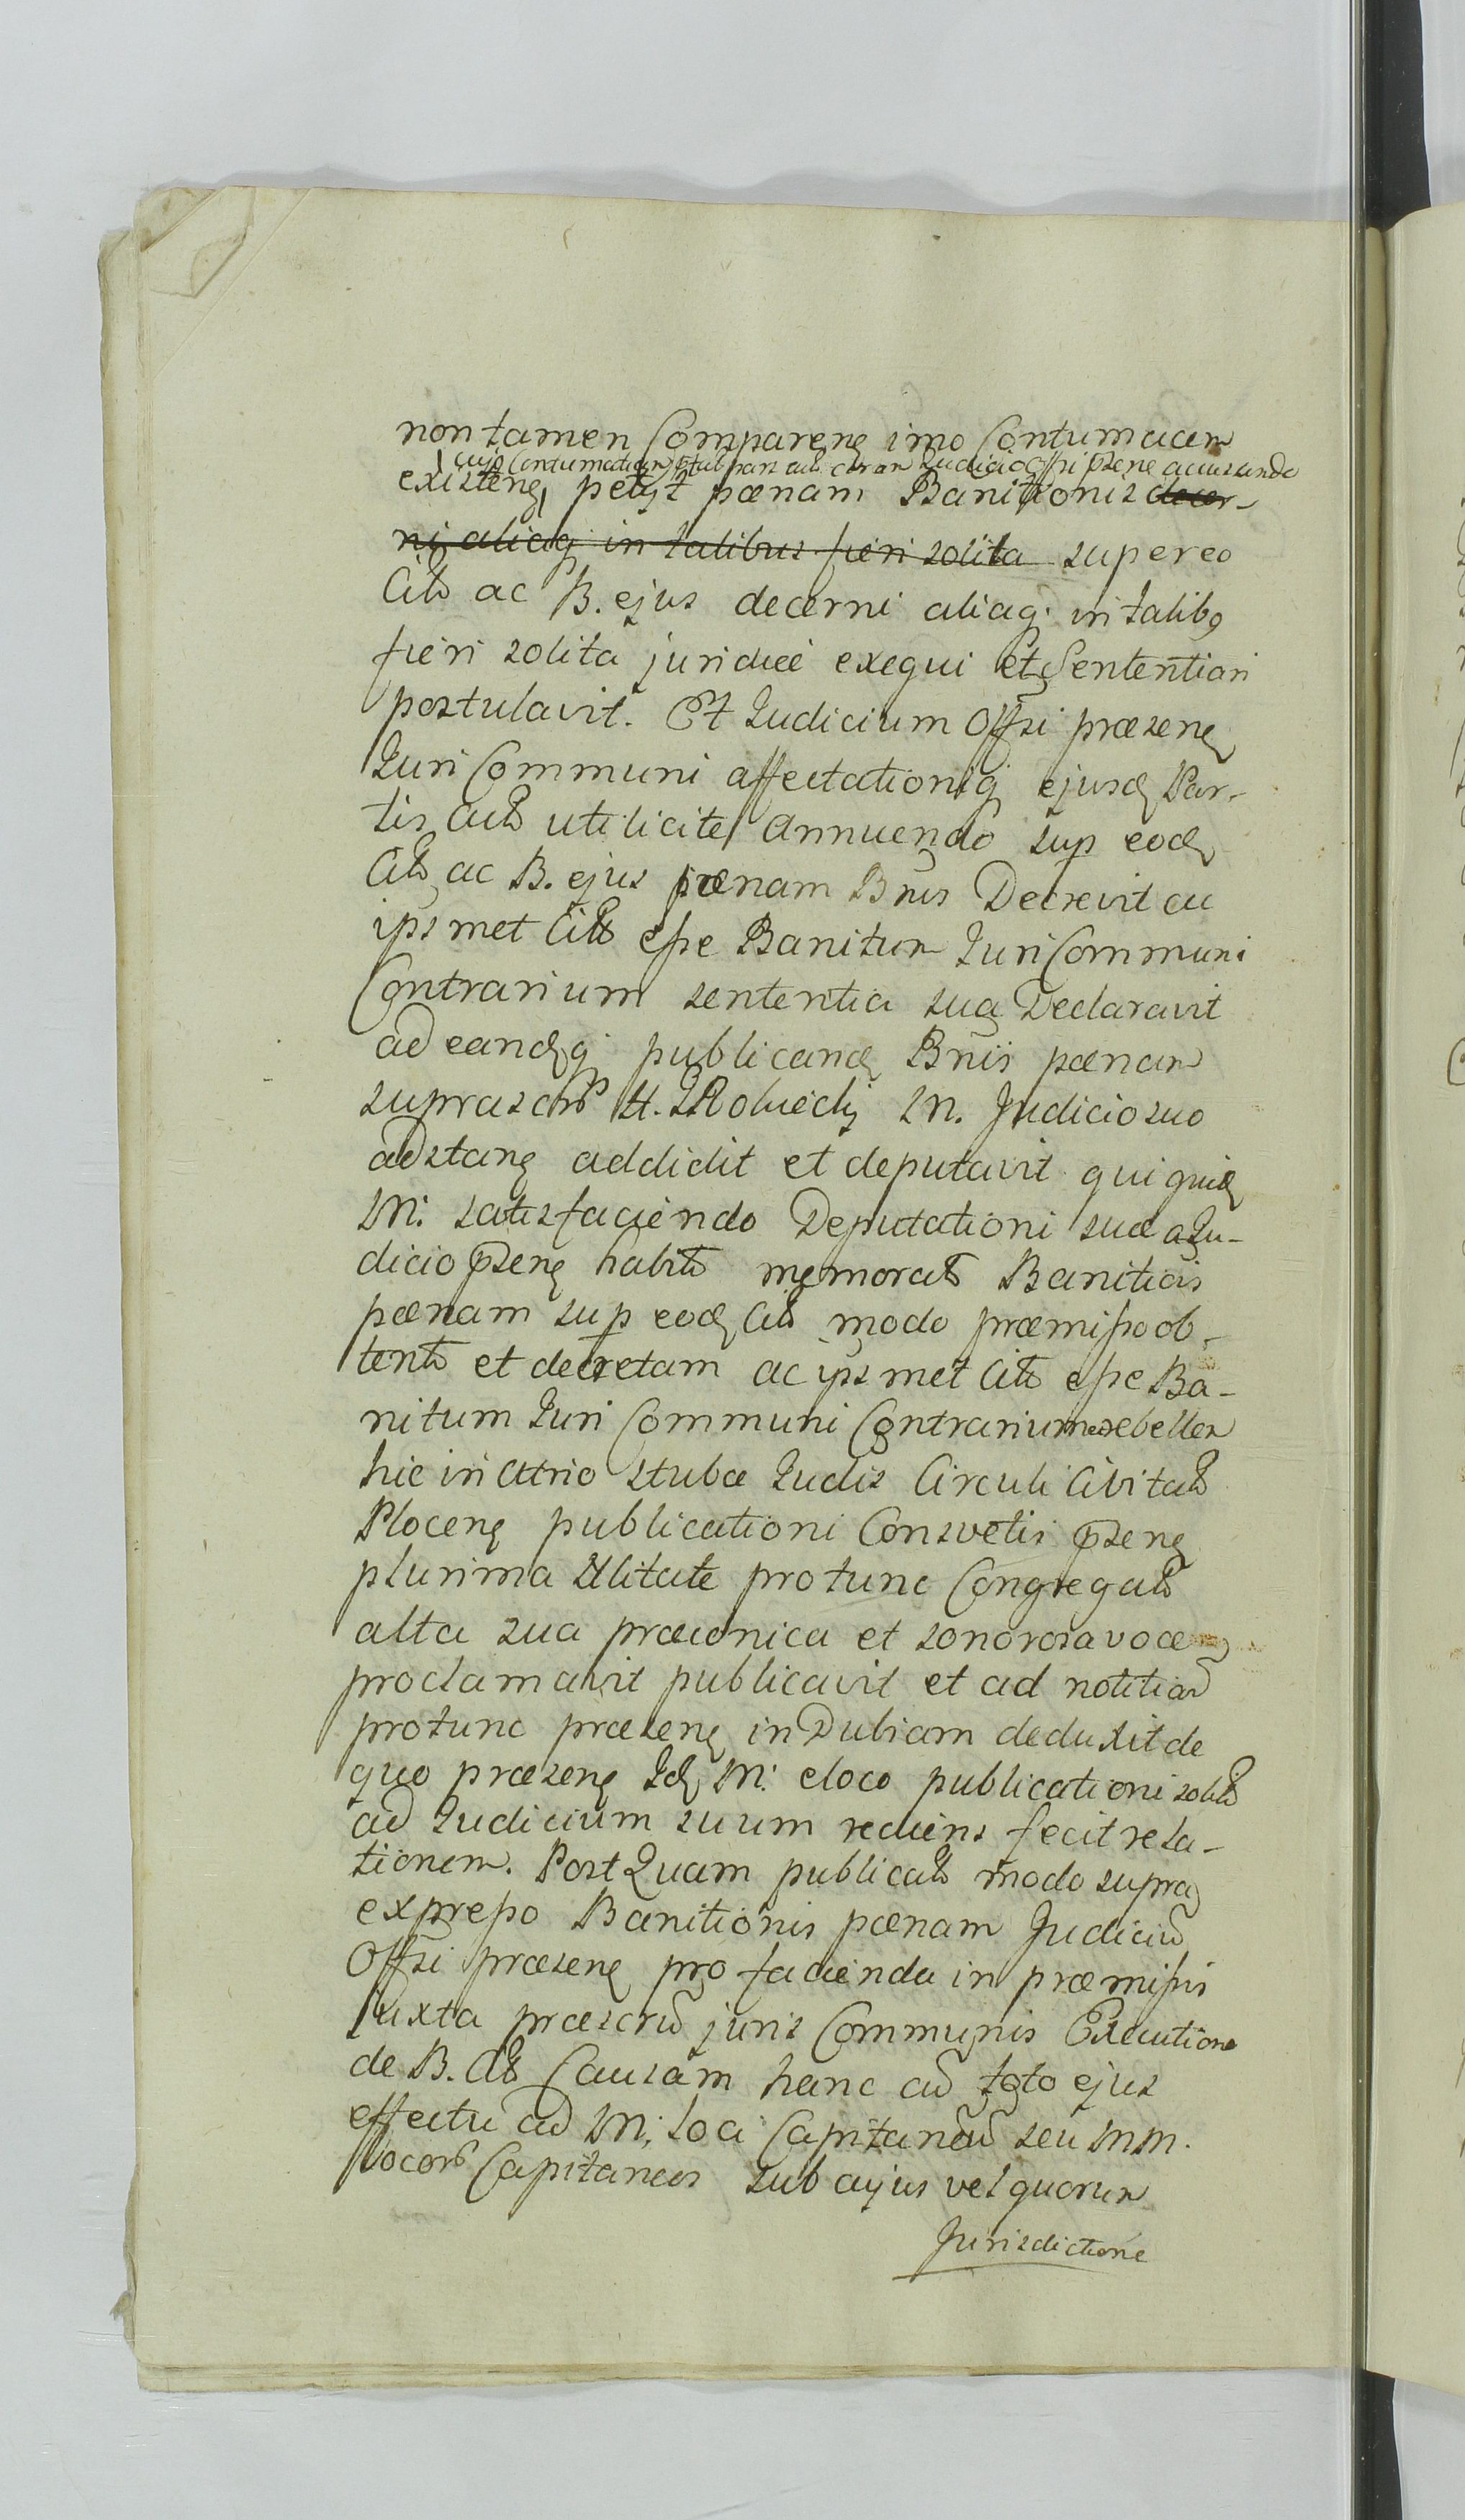 non tamen Comparenę imo Contumacem
cujꝰ Contumatiam coram Judicio Offsi p̄senę accusando
existenę, petyt pœnam Banitionis decer-
ni aliaq̨ in talibus fieri solita super eo
Cito ac B. ejus decerni aliaq̨ in talibꝰ
fieri solita juridicé exequi et Sententiari
postulavit. Et Judicium Offsi præsenę
Juri Communi affectationiq̨ ejusdę Par-
tis Acto uti licite Annuendo sup eodę
Cito ac B. ejus pœnam Bn̄is Decrevit ac
ipsmet Citto esse Banitum Juri Communi
Contrarium sententia sua Declaravit
ad eandęq̨ publicandę Bn̄iis pœnam
suprascrō H. M. Judicio suo
adstanę addidit et deputavit qui quidę
M. satisfaciendo Deputationi suæ a Ju-
dicio p̄senę habito memorato Banitiois
pœnam sup eodę Cito modo præmisso ob-
tento et decretam ac ipsmet Cito esse Ba-
nitum Juri Communi Contrarium et rebellem
hic in Atrio Stubæ Judis Circuli Civitato
Plocenę publicationi Consvetis p̄senę
plurima Nlitate protunc Congregato
alta sua præconica et sonorosa voce
proclamavit publicavit et ad notitiam
protunc præsenę in Dubiam deduxit de
quo præsenę Idę M. e loco publicationi solito
ad Judicium suum rediens fecit rela-
tionem. Post Quam publicato modo supra
expresso Banitionis pœnam Judiciū
Offsi præsenę pro facienda in præmissis
Juxta præscrū juris Communis Executione
de B. Cito Causam hanc cū toto ejus
effectu ad M. Loci Capitaneū seu MM.
Locorō Capitaneos sub cujus vel quorum
Jurisdictione